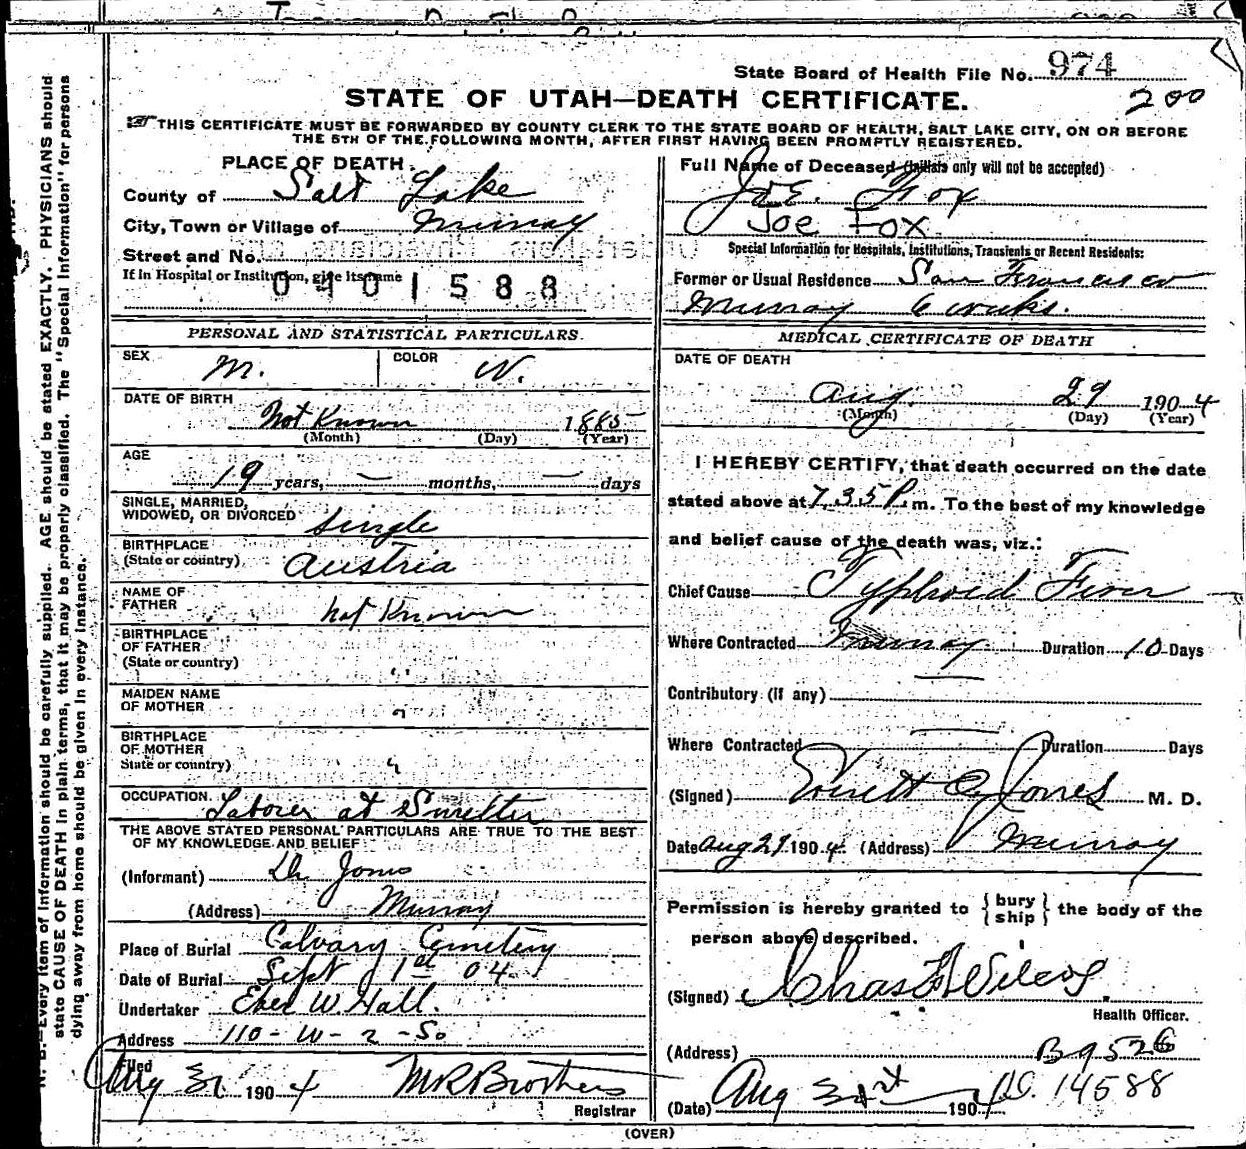 State Board of Health File No. 974
200
STATE OF UTAH—DEATH CERTIFICATE.
THIS CERTIFICATE MUST BE FORWARDED BY COUNTY CLERK TO THE STATE BOARD OF HEALTH, SALT LAKE CITY, ON OR BEFORE
THE 5TH OF THE FOLLOWING MONTH, AFTER FIRST HAVING BEEN PROMPTLY REGISTERED.
PLACE OF DEATH
County of Salt Lake
City, Town or Village of Murray
Street and No.
If in Hospital or Institution, give its name
0401588
Full Name of Deceased (Initials only will not be accepted)
Joe. Fox
Joe Fox
Special Information for Hospitals, Institutions, Transients or Recent Residents:
Former or Usual Residence San Francisco
Murray 6 weeks.
PERSONAL AND STATISTICAL PARTICULARS.
SEX M.
COLOR W.
DATE OF BIRTH
Not Known 1885
(Month) (Day) (Year)
AGE
19 years, — months, — days
SINGLE, MARRIED,
WIDOWED, OR DIVORCED Single
BIRTHPLACE
(State or country) Austria
NAME OF
FATHER not Known
BIRTHPLACE
OF FATHER
(State or country) "
MAIDEN NAME
OF MOTHER "
BIRTHPLACE
OF MOTHER
State or country) "
OCCUPATION Laborer at Smelter
THE ABOVE STATED PERSONAL PARTICULARS ARE TRUE TO THE BEST
OF MY KNOWLEDGE AND BELIEF
(Informant) Dr Jones
(Address) Murray
Place of Burial Calvary Cemetery
Date of Burial Sept 1st 04
Undertaker Eber W. Hall.
Address 110 - W - 2 - So
Filed
Aug 31 1904 M R Brothers
Registrar
MEDICAL CERTIFICATE OF DEATH
DATE OF DEATH
Aug. 29 1904
(Month) (Day) (Year)
I HEREBY CERTIFY, that death occurred on the date
stated above at 7.35 P. m. To the best of my knowledge
and belief cause of the death was, viz.:
Chief Cause Typhoid Fever
Where Contracted Murray Duration 10 Days
Contributory (if any) —
Where Contracted — Duration Days
(Signed) Everett C Jones M. D.
Date Aug 29 1904 (Address) Murray
Permission is hereby granted to { bury ship } the body of the
person above described.
(Signed) Chas F Wilcox.
Health Officer.
(Address) B9526
(Date) Aug 31st 1904 14588
(OVER)
N. B.—Every item of information should be carefully supplied. AGE should be stated EXACTLY. PHYSICIANS should
state CAUSE OF DEATH in plain terms, that it may be properly classified. The "Special Information" for persons
dying away from home should be given in every instance.